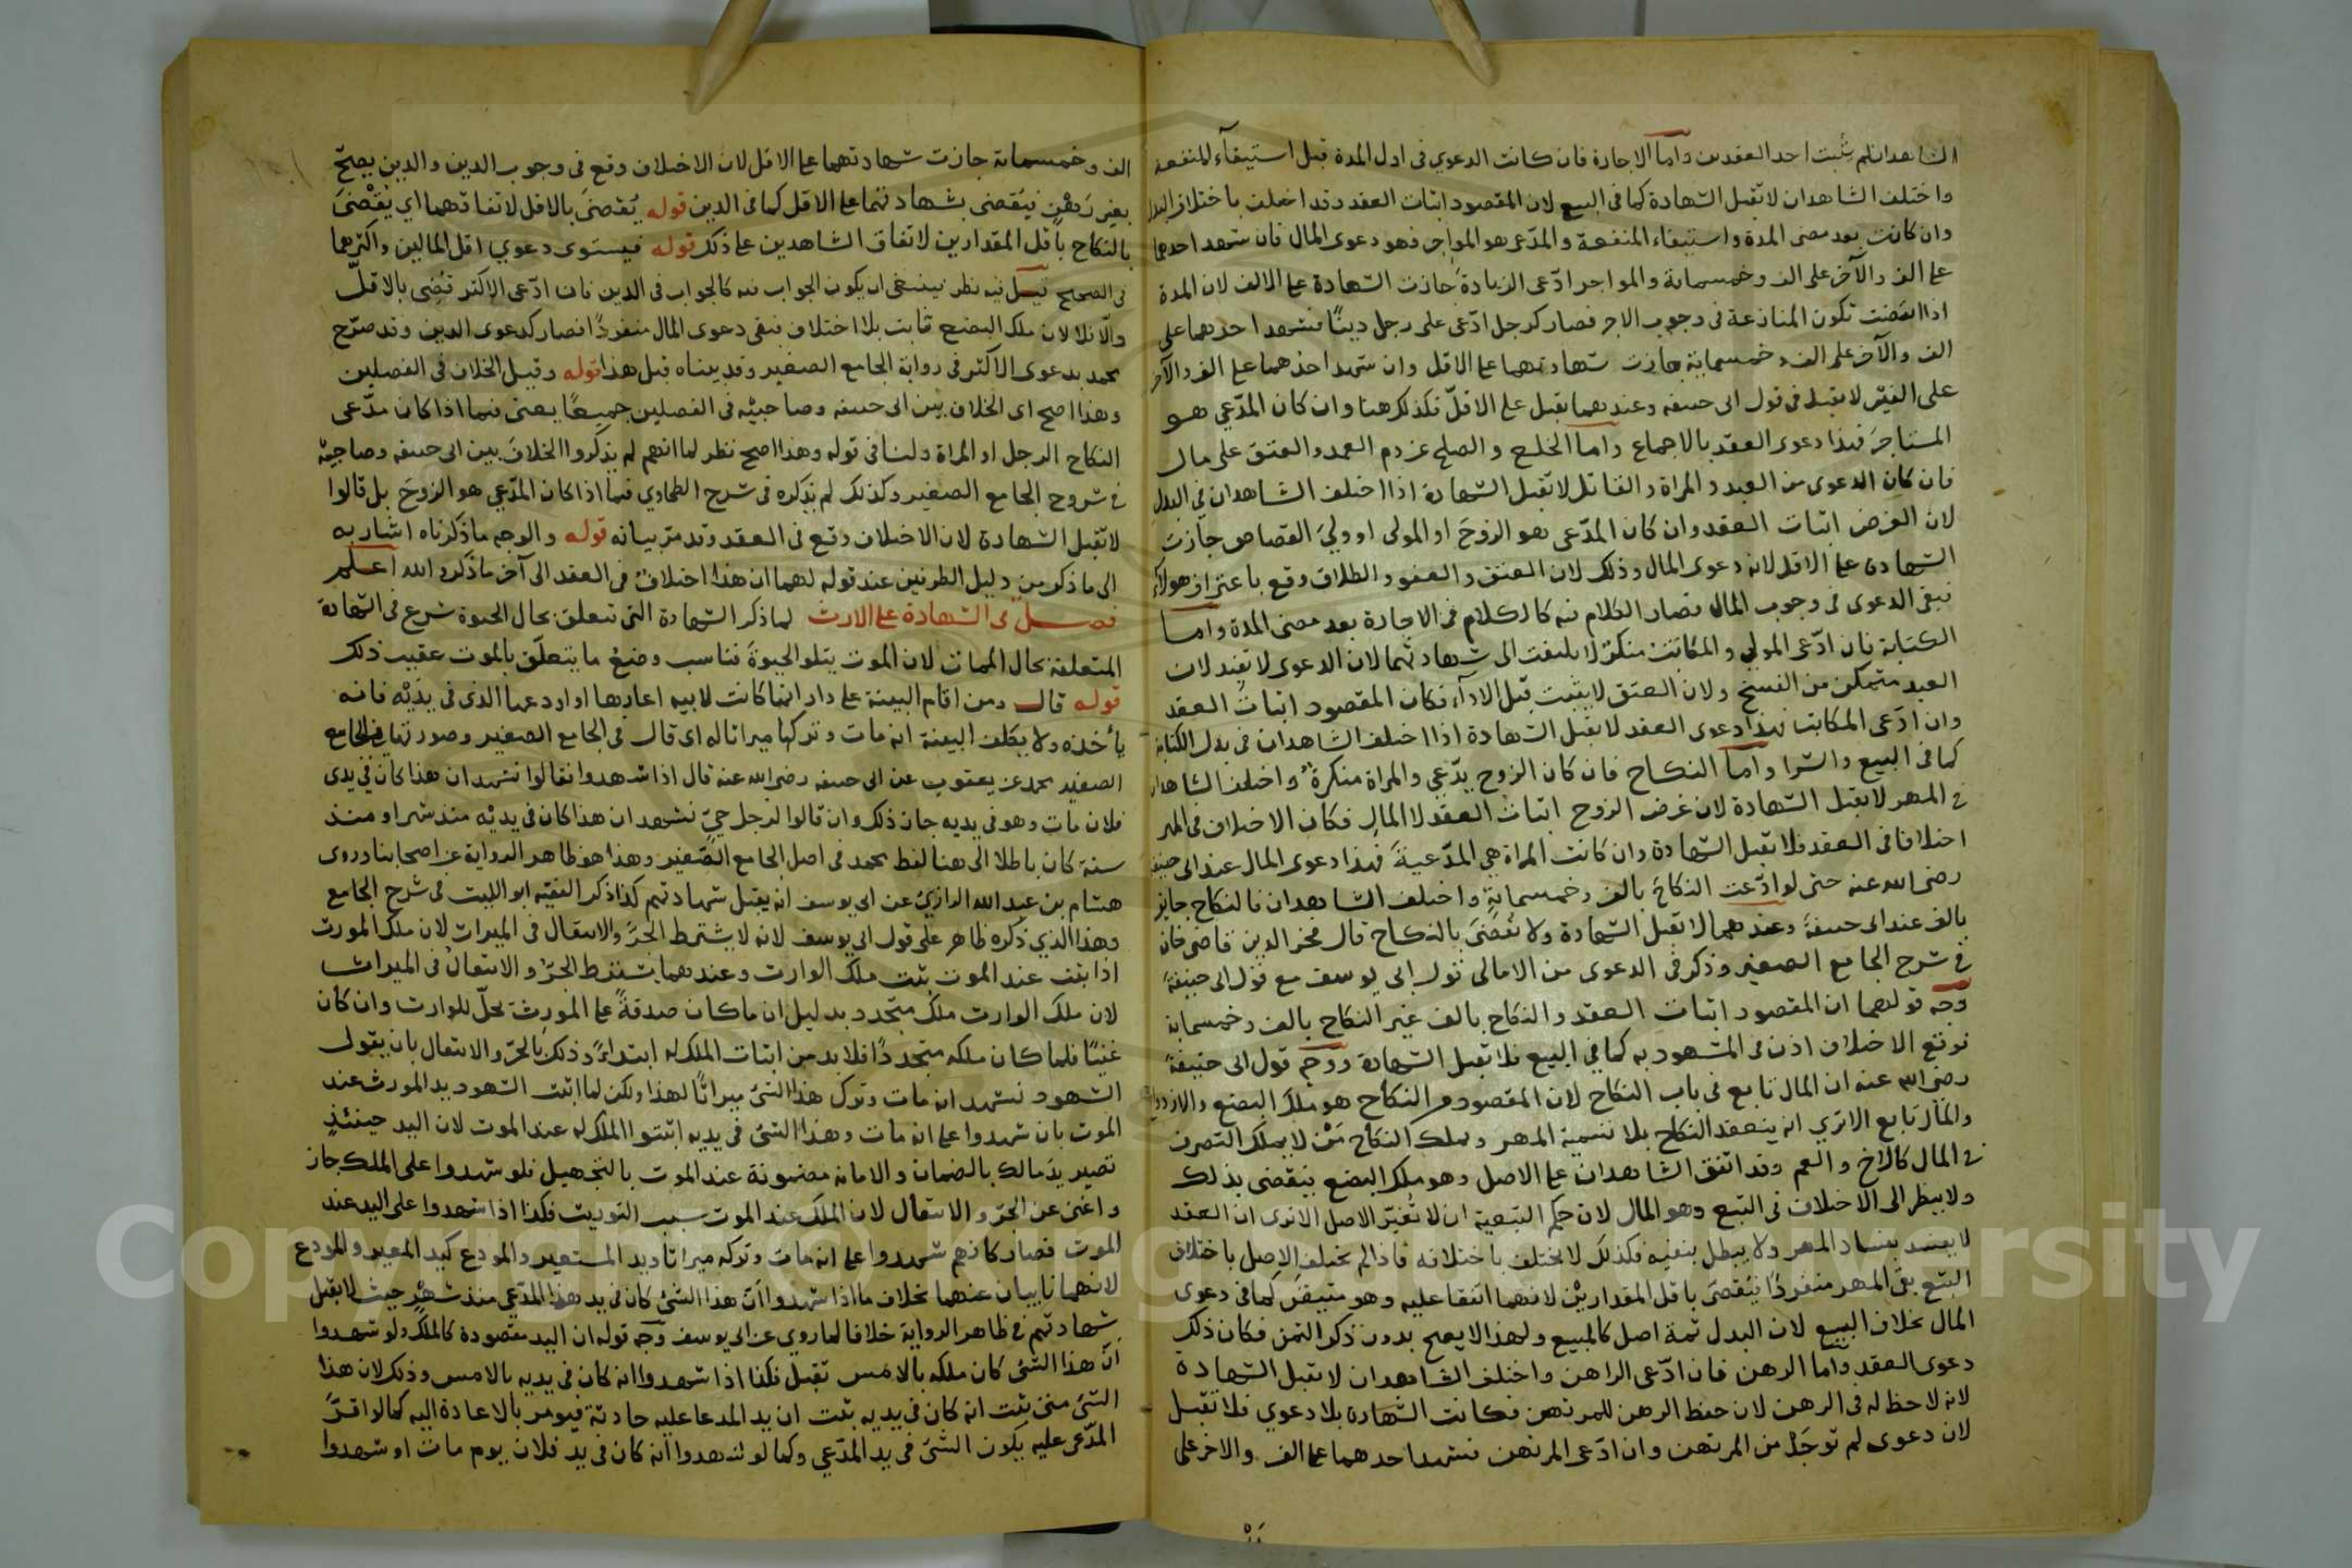 الشاهدان لم يثبت احد العقدين واما الاجارة فان كانت الدعوي في اول المدة قبل استيفاء المنفعة
واختلف الشاهدان لا تقبل الشهادة كما في البيع لان المقصود اثبات العقد وقد اختلف باختلاف البدل
وان كانت بعد مضى المدة واستيفاء المنفعة والمدّعى هو المواجر فهو دعوى المال فان شهد احدهما
على الف والآخر على الف وخمسمائة والمواجر ادّعى الزيادة جازت الشهادة على الالف لان المدة
اذا انقضت تكون المنازعة في وجوب الاجر فصار كرجل ادّعى على رجل دينًا فشهد احدهما على
الف والآخر على الف وخمسماية جازت شهادتهما على الاقل وان شهد احدهما على الف والآخر
على الفين لا تقبل في قول ابى حنيفه وعندهما تقبل على الاقلّ فكذلك هنا وان كان المدّعي هو
المستاجرَ فهذا دعوى العقد بالاجماع واما الخلع والصلح عن دم العمد والعتق على مال
فان كان الدعوى من العبد والمراة والقاتل لا تقبل الشهادة اذا اختلف الشاهدان في البدل
لان الغرض اثبات العقد وان كان المدّعى هو الزوجَ او المولى او وليَ القصاص جازت
الشهادة على الاقل لانه دعوى المال وذلك لان العتق والعفو والطلاق وقع باعتراف هولاء
فبقى الدعوى في وجوب المال فصار الكلام فيه كالكلام في الاجارة بعد مضى المدة واما
الكتابة فان ادّعى المولى والمكاتبُ منكرٌ لا يلتفت الى شهادتهما لان الدعوى لا تفيد لان
العبد متمكن من الفسخ ولان العتق لا يثبت قبل الاداء فكان المقصود اثباتَ العقد
وان ادّعى المكاتب فهذا دعوى العقد لا تقبل الشهادة اذا اختلف الشاهدان في بدل الكتابة
كما في البيع والشرا واما النكاح فان كان الزوج يدّعي والمراة منكرةٌ واختلف الشاهدان
في المهر لا تقبل الشهادة لان غرض الزوج اثبات العقد لا المال فكان الاختلاف في المهر
اختلافا في العقد فلا تقبل الشهادة وان كانت المراة هي المدّعيةَ فهذا دعوى المال عند ابى حنيفة
رضى الله عنه حتى لو ادّعت النكاحَ بالف وخمسماية واختلف الشاهدان فالنكاح جايز
بالف عند ابى حنيفةَ وعندهما لا تقبل الشهادة ولا يُقضَى بالنكاح قال فخر الدين قاضى خان
في شرح الجامع الصغير وذكر في الدعوى من الامالي قول ابى يوسف مع قول ابى حنيفةَ
وجه قولهما ان المقصود اثبات العقد والنكاح بالف غير النكاح بالف وخمسماية
فوقع الاختلاف اذن في المشهود به كما في البيع فلا تقبل الشهادة ووجه قول ابى حنيفةَ
رضى الله عنه ان المال تابع في باب النكاح لان المقصود من النكاح هو ملك البضع والازدواج
والمال تابع الا ترى انه ينعقد النكاح بلا تسمية المهر ويملك النكاح مَن لا يملك التصرف
في المال كالاخ والعم وقد اتفق الشاهدان على الاصل وهو ملك البضع فيقضى بذلك
ولا ينظر الى الاختلاف في التبع وهو المال لان حكم التبعية ان لا تُغيّر الاصل الا ترى ان العقد
لا يفسد بفساد المهر ولا يبطل بنفيه فكذلك لا يختلف باختلافه فاذا لم يختلف الاصل باختلاف
التبع بقى المهر منفردًا فيُقضَى باقل المقدارين لانهما اتفقا عليه وهو متيقن كما في دعوى
المال بخلاف البيع لان البدل ثمة اصل كالمبيع ولهذا لا يصح بدون ذكر الثمن فكان ذلك
دعوى العقد واما الرهن فان ادّعى الراهن واختلف الشاهدان لا تقبل الشهادة
لانه لا حظ له في الرهن لان حفظ الرهن للمرتهن فكانت الشهادة بلا دعوي فلا تقبل
لان دعوى لم توجَدْ من المرتهن وان ادّعى المرتهن فشهد احدهما على الف والاخر على
الف وخمسمائة جازت شهادتهما على الاقل لان الاختلاف وقع في وجوب الدين والدين يصحّ
بغير رَهْنٍ فيُقضى بشهادتهما على الاقل كما في الدين قوله يُقضىَ بالاقل لاتفاقهما اي يُقْضىَ
بالنكاح باقل المقدارين لاتفاق الشاهدين على ذلك قوله فيستوى دعوي اقل المالين واكثرهما
في الصحيح قيل فيه نظر فينبغى ان يكون الجواب فيه كالجواب في الدين فان ادّعى الاكثر قُضِى بالاقلّ
والّا فلا لان ملك البضع ثابت بلا اختلاف فبقى دعوى المال منفردًا فصار كدعوى الدين وقد صرّح
محمد بدعوى الاكثر في رواية الجامع الصغير وقد بيناه قبل هذا قوله وقيل الخلاف في الفصلين
وهذا اصح اى الخلاف بين ابى حنيفه وصاحبيْه في الفصلين جميعًا يعنى فيما اذا كان مدّعى
النكاح الرجل او المراة ولنا في قوله وهذا اصح نظر لما انهم لم يذكروا الخلافَ بين ابى حنيفه وصاحبيْه
في شروح الجامع الصغير وكذلك لم يذكره في شرح الطحاوي فيما اذا كان المدّعي هو الزوجَ بل قالوا
لا تقبل الشهادة لان الاختلاف وقع في العقد وقد مرّ بيانه قوله والوجه ما ذكرناه اشار به
الى ما ذكر من دليل الطرفين عند قوله لهما ان هذا اختلافٌ في العقد الى آخر ما ذكره الله اعلم
فصل في الشهادة على الارث لما ذكر الشهادة التى تتعلق بحال الحيوة شرع في الشهادة
المتعلقة بحال الممات لان الموت يتلو الحيوةَ فناسب وضعُ ما يتعلّق بالموت عقيب ذلك
قوله قال ومن اقام البينة على دار انها كانت لابيه اعارها او اودعها الذى في يدَيْه فانه
يأخذه ولا يكلف البينة انه مات وتركها ميراثا له اى قال في الجامع الصغير وصورتها في الجامع
الصغير محمد عن يعقوب عن ابى حنيفه رضى الله عنه قال اذا شهدوا فقالوا نشهد ان هذا كان في يدى
فلان مات وهو في يديه جاز ذلك وان قالوا لرجل حيّ نشهد ان هذا كان في يديْه منذ شهر او منذ
سنة كان باطلا الى هنا لفظ محمد في اصل الجامع الصّغير وهذا هو ظاهر الرواية عن اصحابنا وروى
هشام بن عبد الله الرازيُ عن ابى يوسف انه يقبل شهادتهم كذا ذكر الفقيه ابو الليث في شرح الجامع
وهذا الذي ذكره ظاهر على قول ابى يوسف لانه لا يشترط الجرَّ والانتقال في الميراث لان ملك المورث
اذا ثبت عند الموت ثبت ملك الوارث وعندهما يشترط الجرّ والانتقالُ في الميراث
لان ملك الوارث ملك متجدد بدليل ان ما كان صدقةً على المورث تحلّ للوارث وان كان
غنيًا فلما كان ملكه متجددًا فلا بد من اثبات الملك له ابتداءً وذلك بالجرّ والانتقال بان يقول
الشهود نشهد انه مات وترك هذا الشئ ميراثًا لهذا ولكن لما اثبت الشهود يد المورث عند
الموت بان شهدوا على انه مات وهذا الشئ في يديه اثبتوا الملك له عند الموت لان اليد حينئذٍ
تصير يدَ مالك بالضمان والامانه مضمونة عند الموت بالتجهيل فلو شهدوا على الملك جاز
واغنى عن الجرّ والانتقال لان الملك عند الموت سبب التوريث فكذا اذا شهدوا على اليد عند
الموت فصار كانهم شهدوا على انه مات وتركه ميراثا ويد المستعير والمودع كيد المعير والمودع
لانهما نايبان عنهما بخلاف ما اذا شهدوا انّ هذا الشئ كان في يد هذا المدّعي منذ شهْرٍ حيث لا يقبل
شهادتهم في ظاهر الرواية خلافا لما روي عن ابى يوسف وجه قوله ان اليد مقصودة كالملك ولو شهدوا
انّ هذا الشئ كان ملكه بالامس تقبل فكذا اذا شهدوا انه كان في يديه بالامس وذلك لان هذا
الشئ متى ثبت انه كان في يديه ثبت ان يد المدعا عليه حادثة فيومر بالاعادة اليه كما لو اقرّ
المدّعى عليه بكون الشئ في يد المدّعي وكما لو شهدوا انه كان في يد فلان يوم مات او شهدوا
Copyright © King Saud University